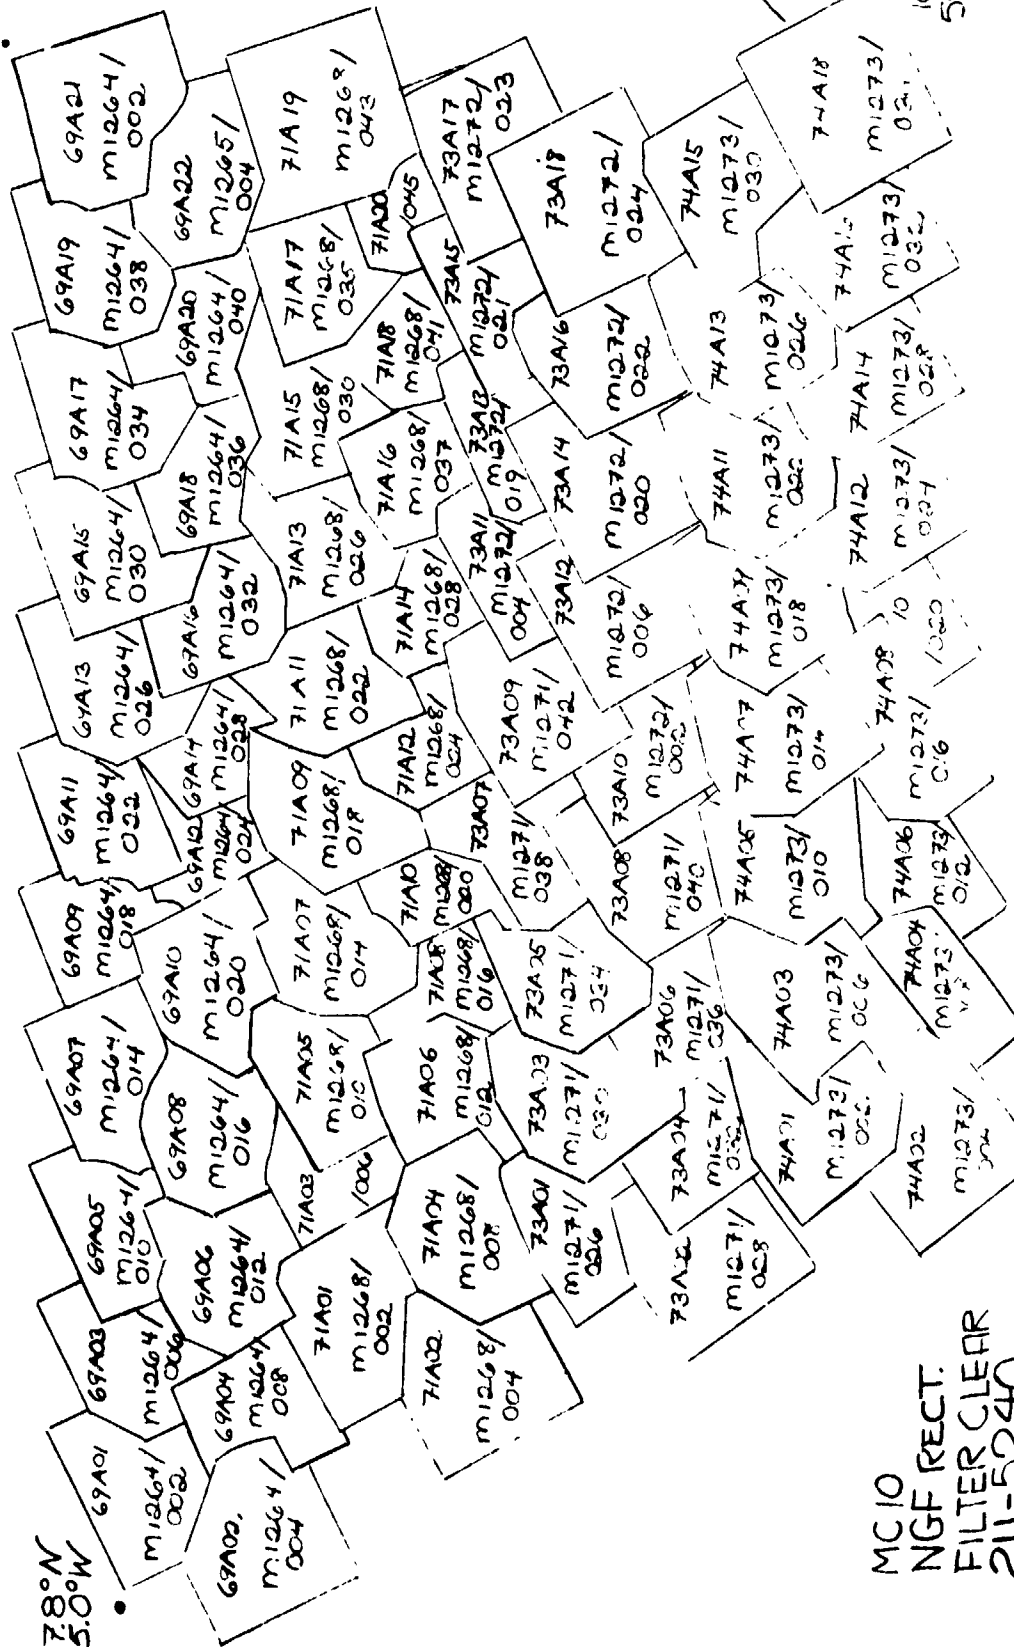 7.8°N
5.0°W
69A01
M1264/
002
69A02
M1264/
004
69A03
M1264/
006
69A04
M1264/
008
69A05
M1264/
010
69A06
M1264/
012
69A07
M1264/
014
69A08
M1264/
016
69A09
M1264/
018
69A10
M1264/
020
69A11
M1264/
022
69A12
M1264/
024
69A13
M1264/
026
69A14
M1264/
028
69A15
M1264/
030
69A16
M1264/
032
69A17
M1264/
034
69A18
M1264/
036
69A19
M1264/
038
69A20
M1264/
040
69A21
M1264/
002
69A22
M1265/
004
71A01
M1268/
002
71A02
M1268/
004
71A03
/006
71A04
M1268/
008
71A05
M1268/
010
71A06
M1268/
012
71A07
M1268/
014
71A08
M1268/
016
71A09
M1268/
018
71A10
M1268/
020
71A11
M1268/
022
71A12
M1268/
024
71A13
M1268/
026
71A14
M1268/
028
71A15
M1268/
030
71A16
M1268/
037
71A17
M1268/
035
71A18
M1268/
041
71A19
M1268/
043
71A20
/045
73A01
M1271/
026
73A02
M1271/
028
73A03
M1271/
030
73A04
M1271/
73A05
M1271/
034
73A06
M1271/
036
73A07
M1271/
038
73A08
M1271/
040
73A09
M1271/
042
73A10
M1272/
002
73A11
M1272/
004
73A12
M1272/
006
73A13
M1272/
019
73A14
M1272/
020
73A15
M1272/
021
73A16
M1272/
022
73A17
M1272/
023
73A18
M1272/
024
74A01
M1273/
74A02
M1273/
74A03
M1273/
006
74A04
M1273
74A05
M1273/
010
74A06
M1273
012
74A07
M1273/
014
74A08
M1273/
016
74A09
M1273/
018
10
/020
74A11
M1273/
022
74A12
M1273/
024
74A13
M1273/
026
74A14
M1273/
028
74A15
M1273/
030
M1273/
74A18
M1273/
MC10
NGF RECT.
FILTER CLEAR
211-5240